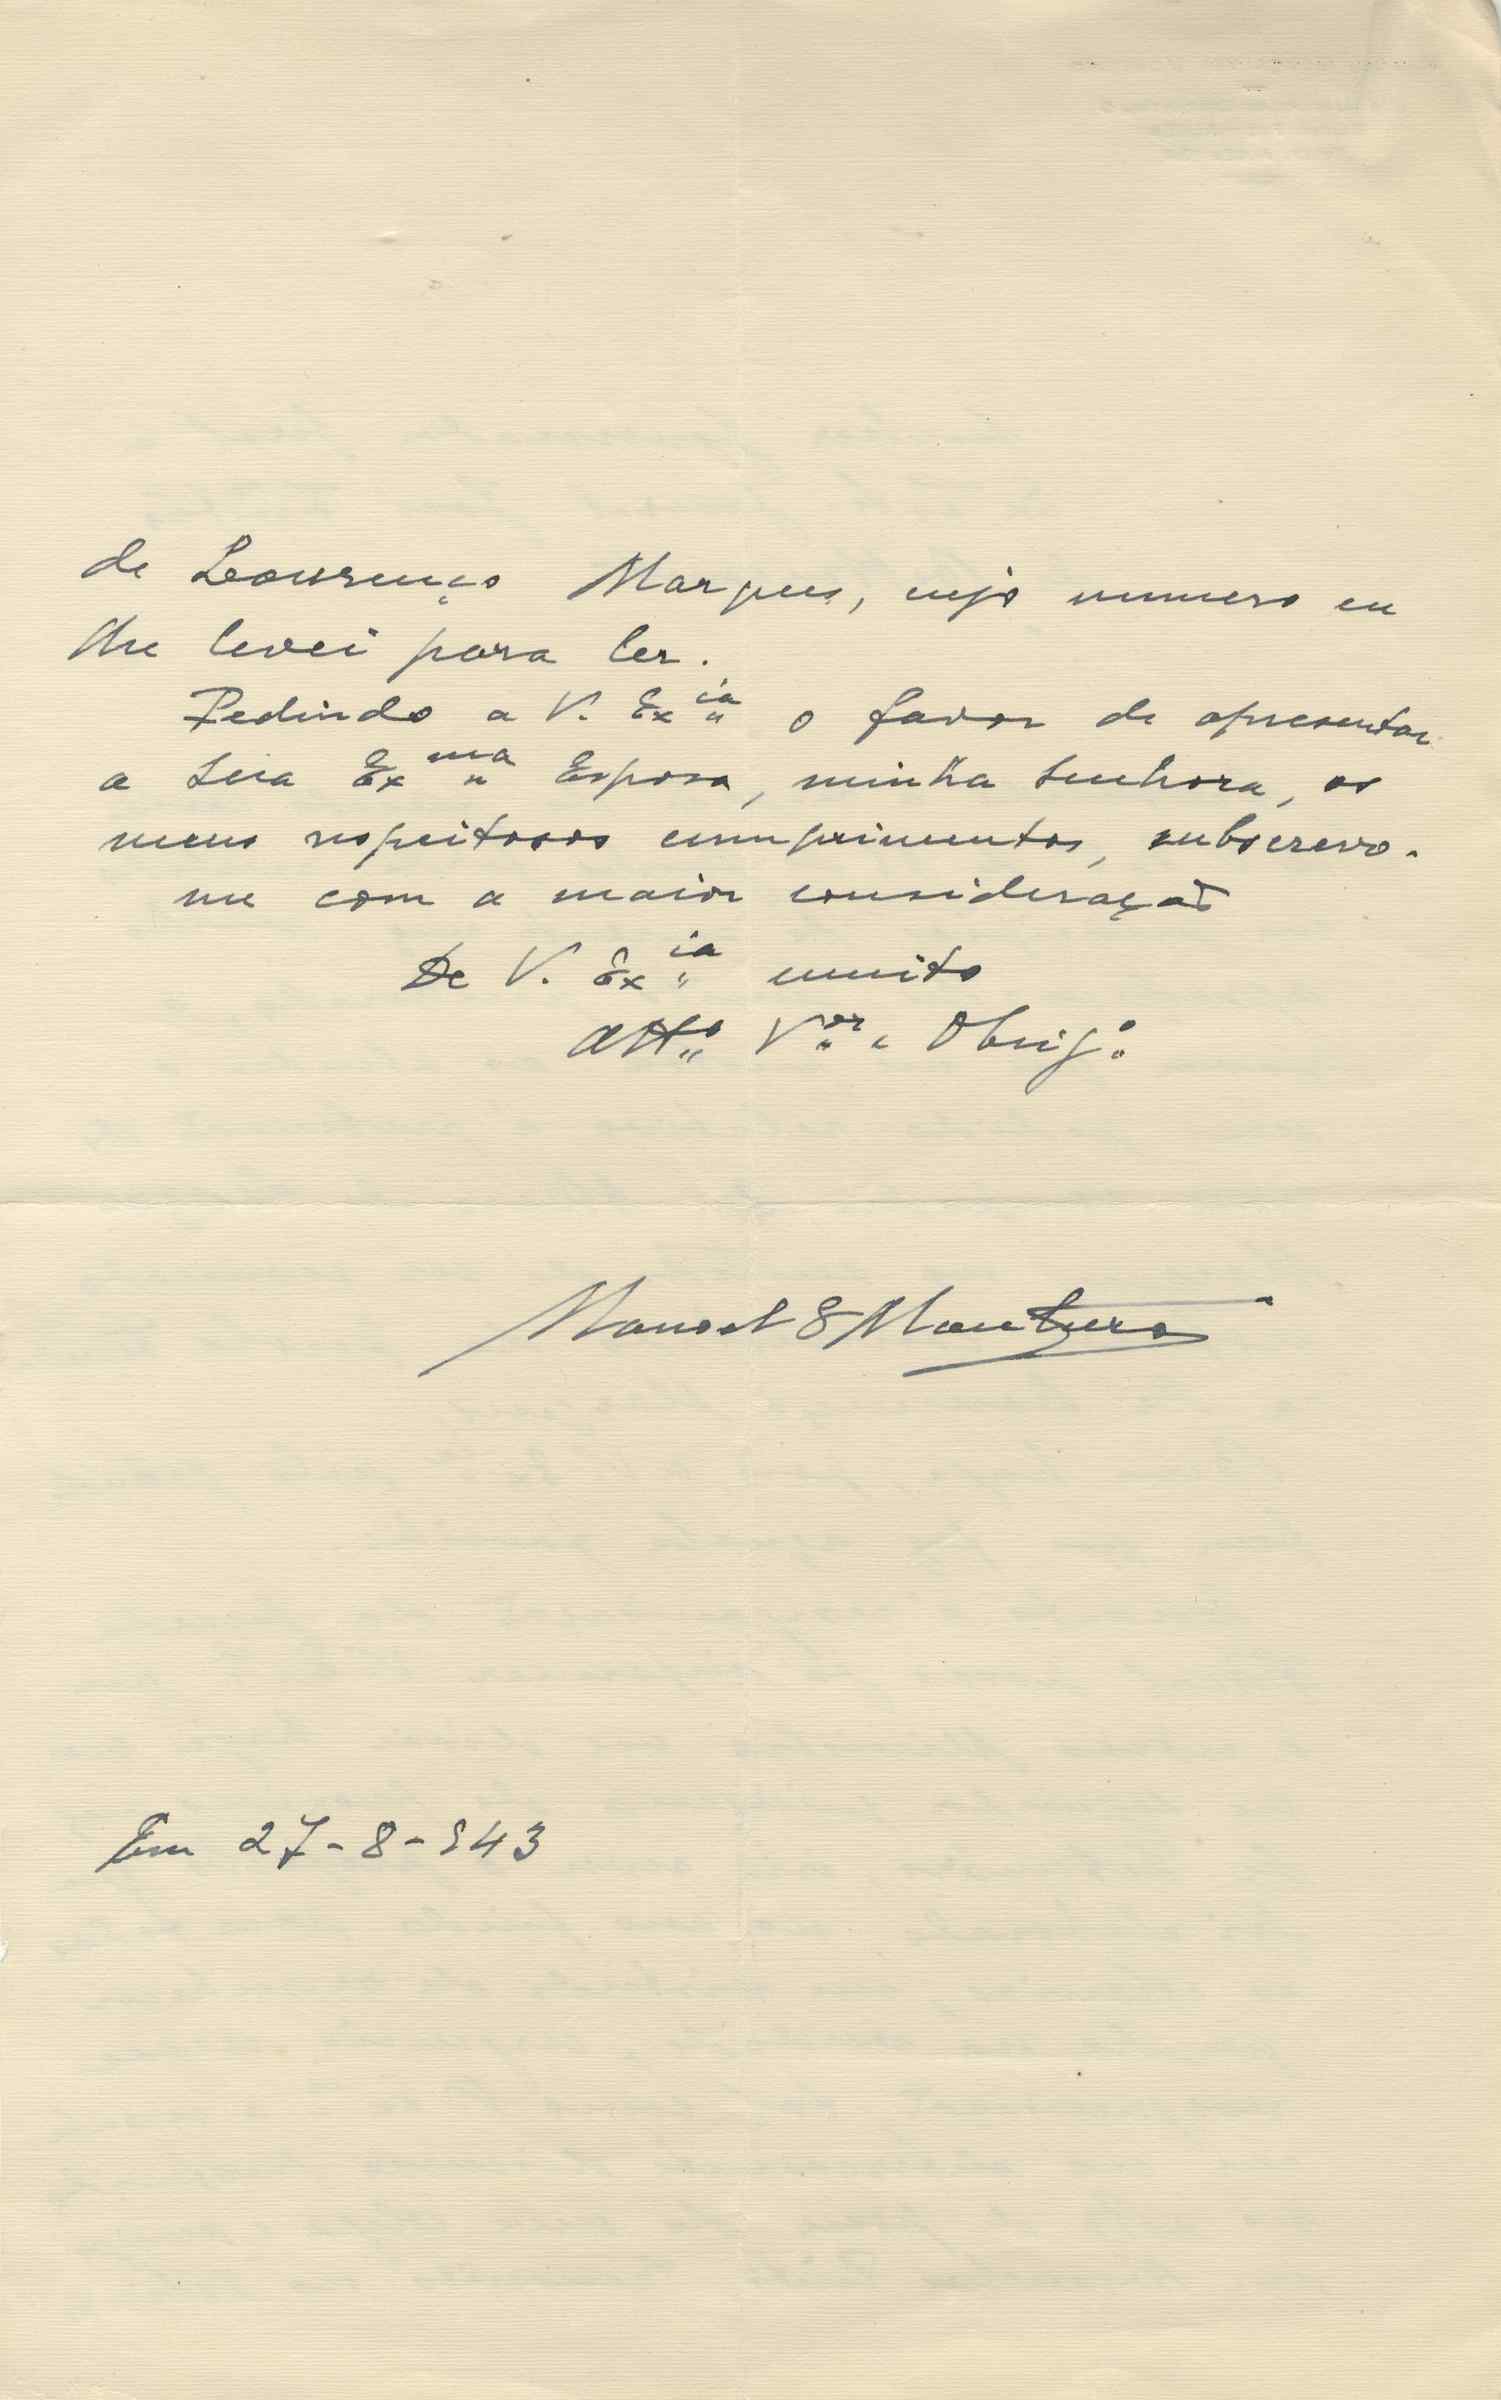 de Lourenço Marques, cujo numero eu
lhe levei para ler.
Pedindo a V. Ex.ia o favor de apresentar
a Sua Ex.ma Esposa, minha Senhora, os
meus respeitosos cumprimentos, subscrevo-
me com a maior consideração
De V. Ex.ia muito
Att.o V.or e Obrig.o
Manoel S Monteiro
Em 27-8-943